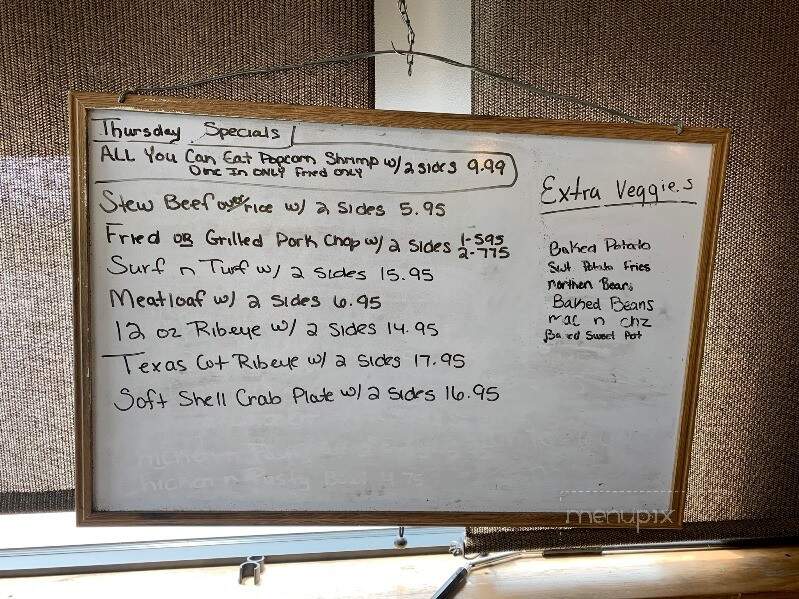 Thursday Specials
ALL You Can Eat Popcorn Shrimp w/ 2 sides 9.99
Dine In ONLY Fried only
Stew Beef over rice w/ 2 sides 5.95
Fried OR Grilled Pork Chop w/ 2 sides 1-595
2-775
Surf n Turf w/ 2 sides 15.95
Meatloaf w/ 2 sides 6.95
12 oz Ribeye w/ 2 sides 14.95
Texas Cut Ribeye w/ 2 sides 17.95
Soft Shell Crab Plate w/ 2 sides 16.95
Extra Veggies
Baked Potato
Swt Potato Fries
northern Beans
Baked Beans
mac n chz
Baked Sweet Pot
menupix